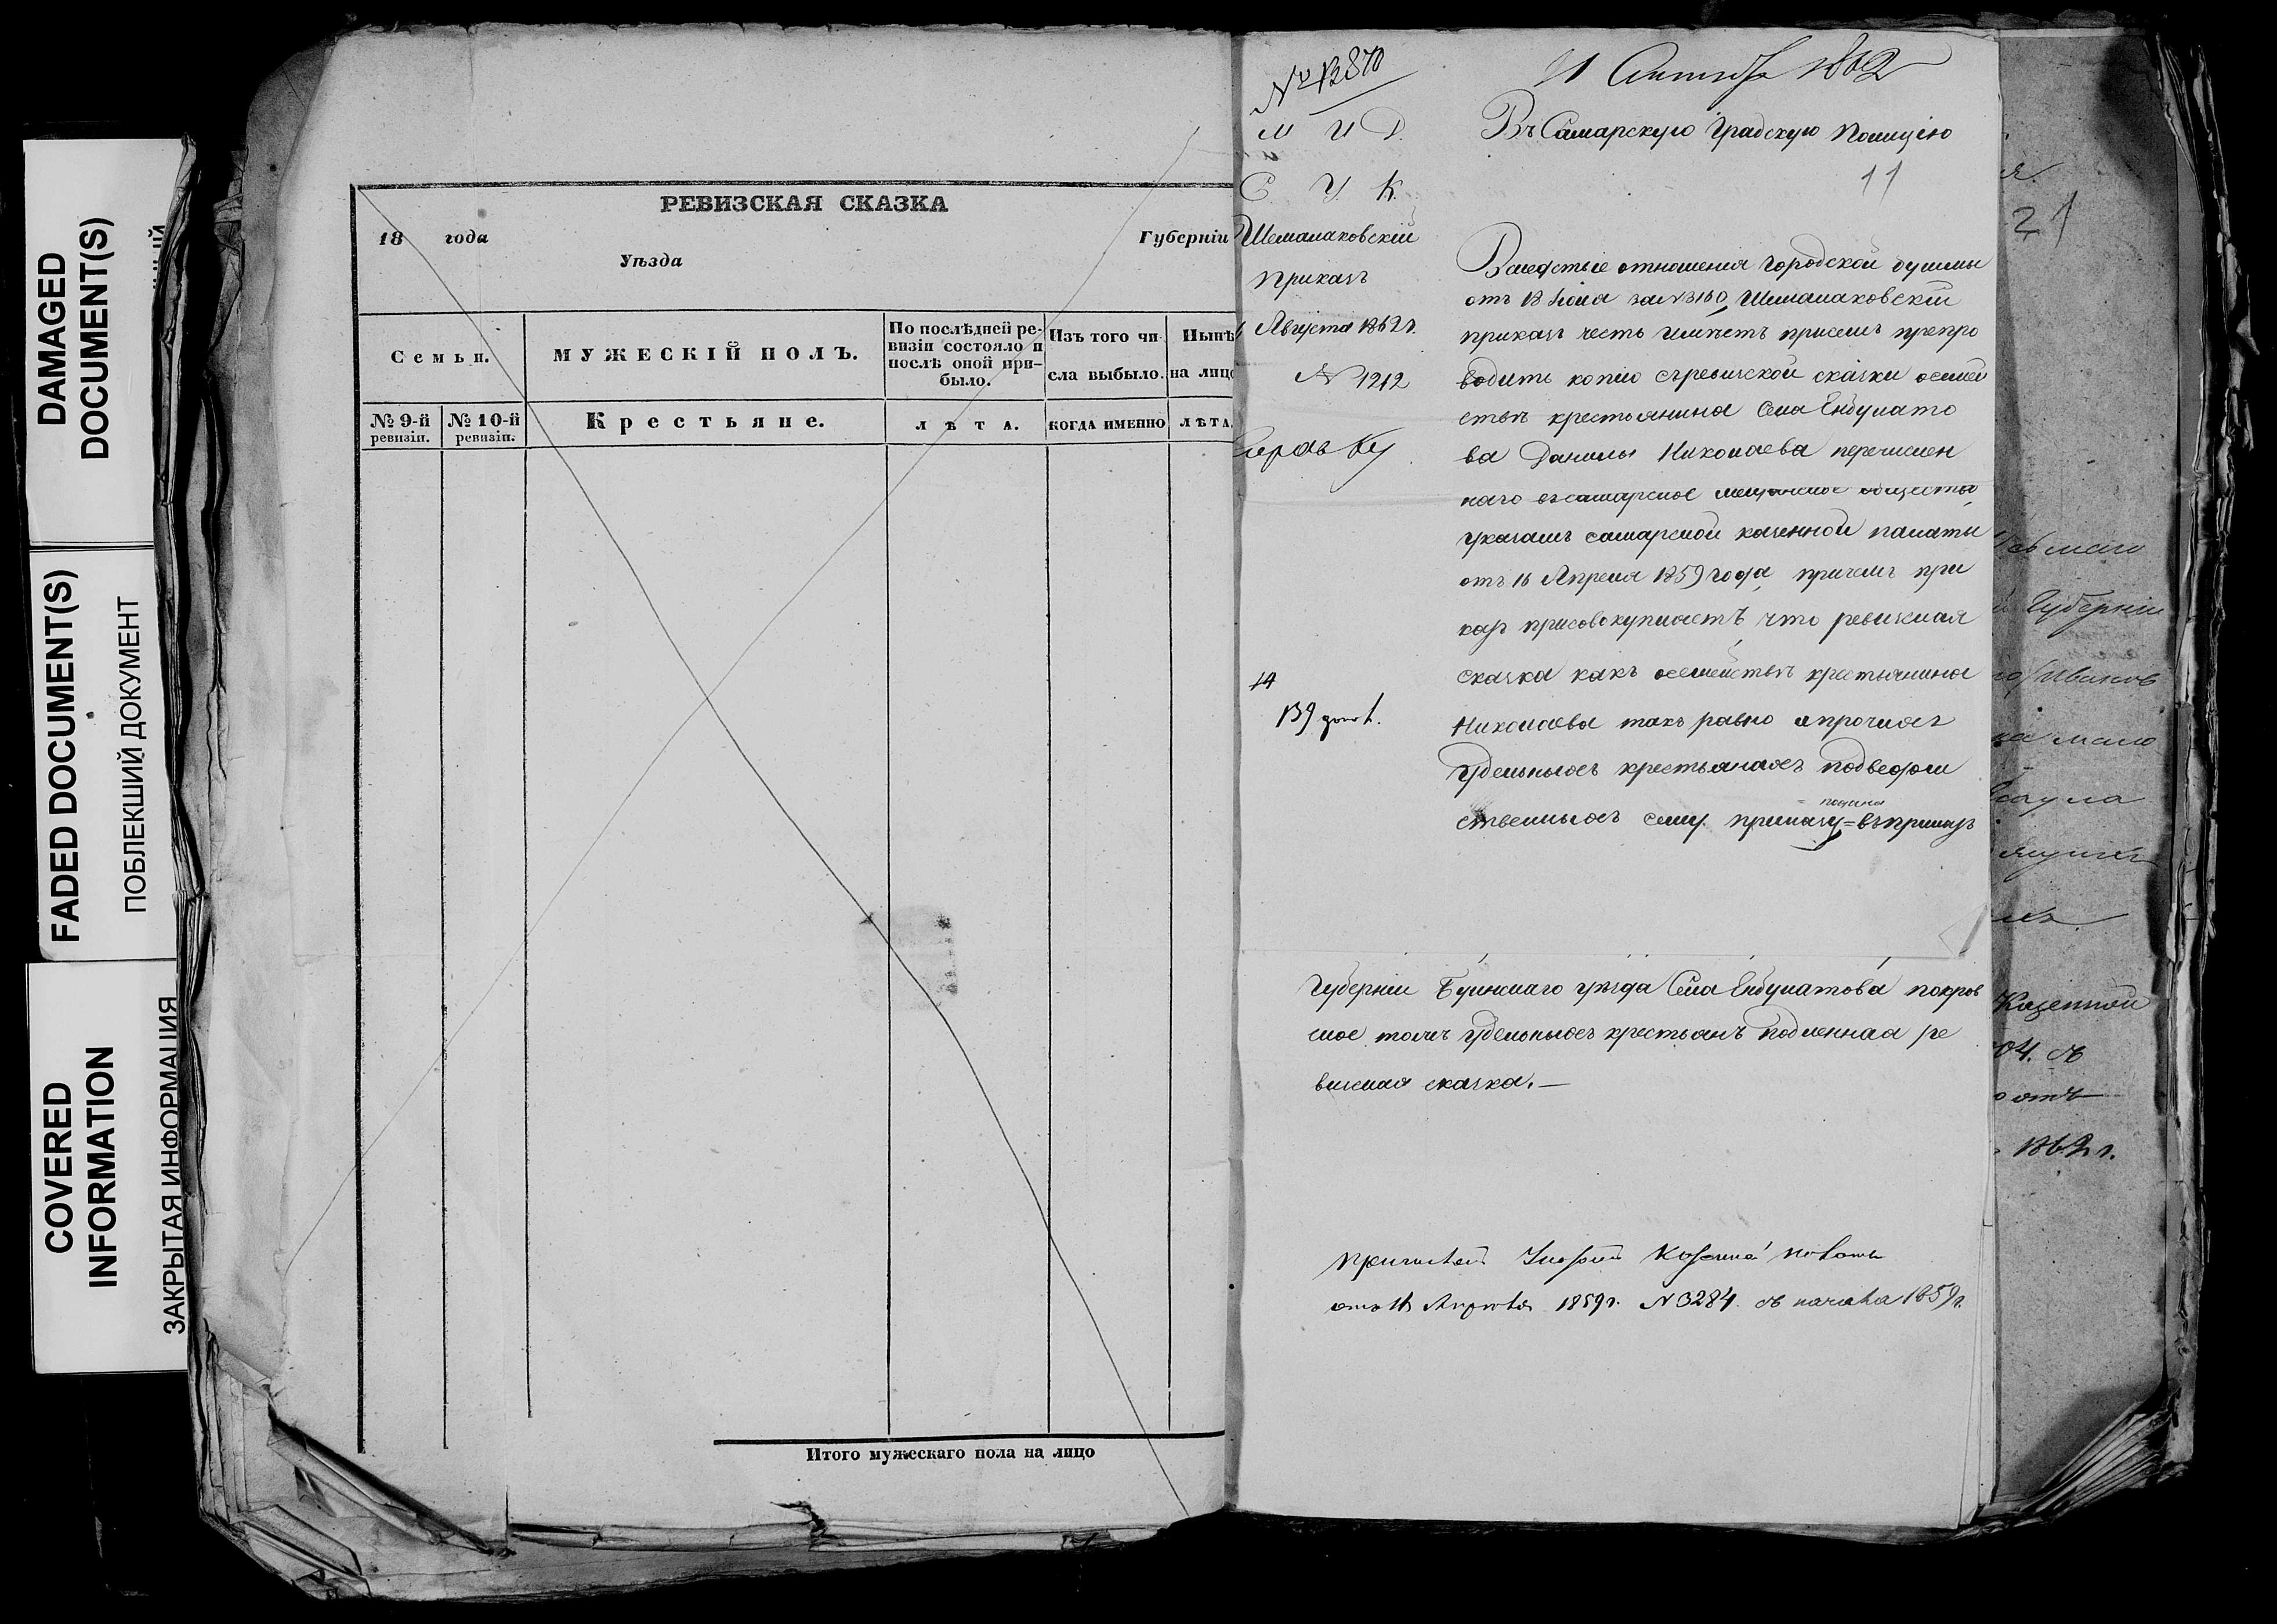 DAMAGED
DOCUMENT(S)
FADED DOCUMENT(S)
ПОБЛЕКШИЙ ДОКУМЕНТ
COVERED
INFORMATION
ЗАКРЫТАЯ ИНФОРМАЦИЯ
РЕВИЗСКАЯ СКАЗКА
18 года Губерніи
Уѣзда
Семьи.
МУЖЕСКІЙ ПОЛЪ.
По послѣдней ре-
визіи состояло и
послѣ оной при-
было.
Изъ того чи
сла выбыло.
Нынѣ
на лицо
№ 9-й
ревизіи.
№ 10-й
ревизіи.
Крестьяне.
ЛѢТА.
КОГДА ИМЕННО
ЛѢТА.
Итого мужескаго пола на лицо
М И Д.
С. У. К.
Шемалаковскій
Приказъ
Августа 1862 г.
№ 1212
1862
Въ Самарскую Градскую Полицію
11
Вслѣдствіе отношенія городской думмы
отъ 13 Іюля за № 3160, Шемалаковскій
приказъ честь имѣетъ присемъ препро
водить копію съ ревизской сказки осемей
ствѣ крестьянина села Енбулато
ва Данилы Николаева перечислен
наго въ самарское мещанское общество
указамъ самарской казенной палаты
отъ 16 Апреля 1859 года, причемъ при
казъ присовокупляетъ, что ревизская
сказка какъ осемействѣ крестьянина
Николаева такъ равно и прочихъ
удельныхъ крестьянахъ подведом
ственныхъ сему приказу = въ приказъ
Губерніи Буинскаго уѣзда Села Енбулатова покров
ское тожъ удельныхъ крестьянъ подленная ре
визская сказка.—
отъ 16 Апреля 1859 г. № 3284. съ начала 1859 г.
21
Губерніи
Казенной
04. съ
отъ
1862 г.